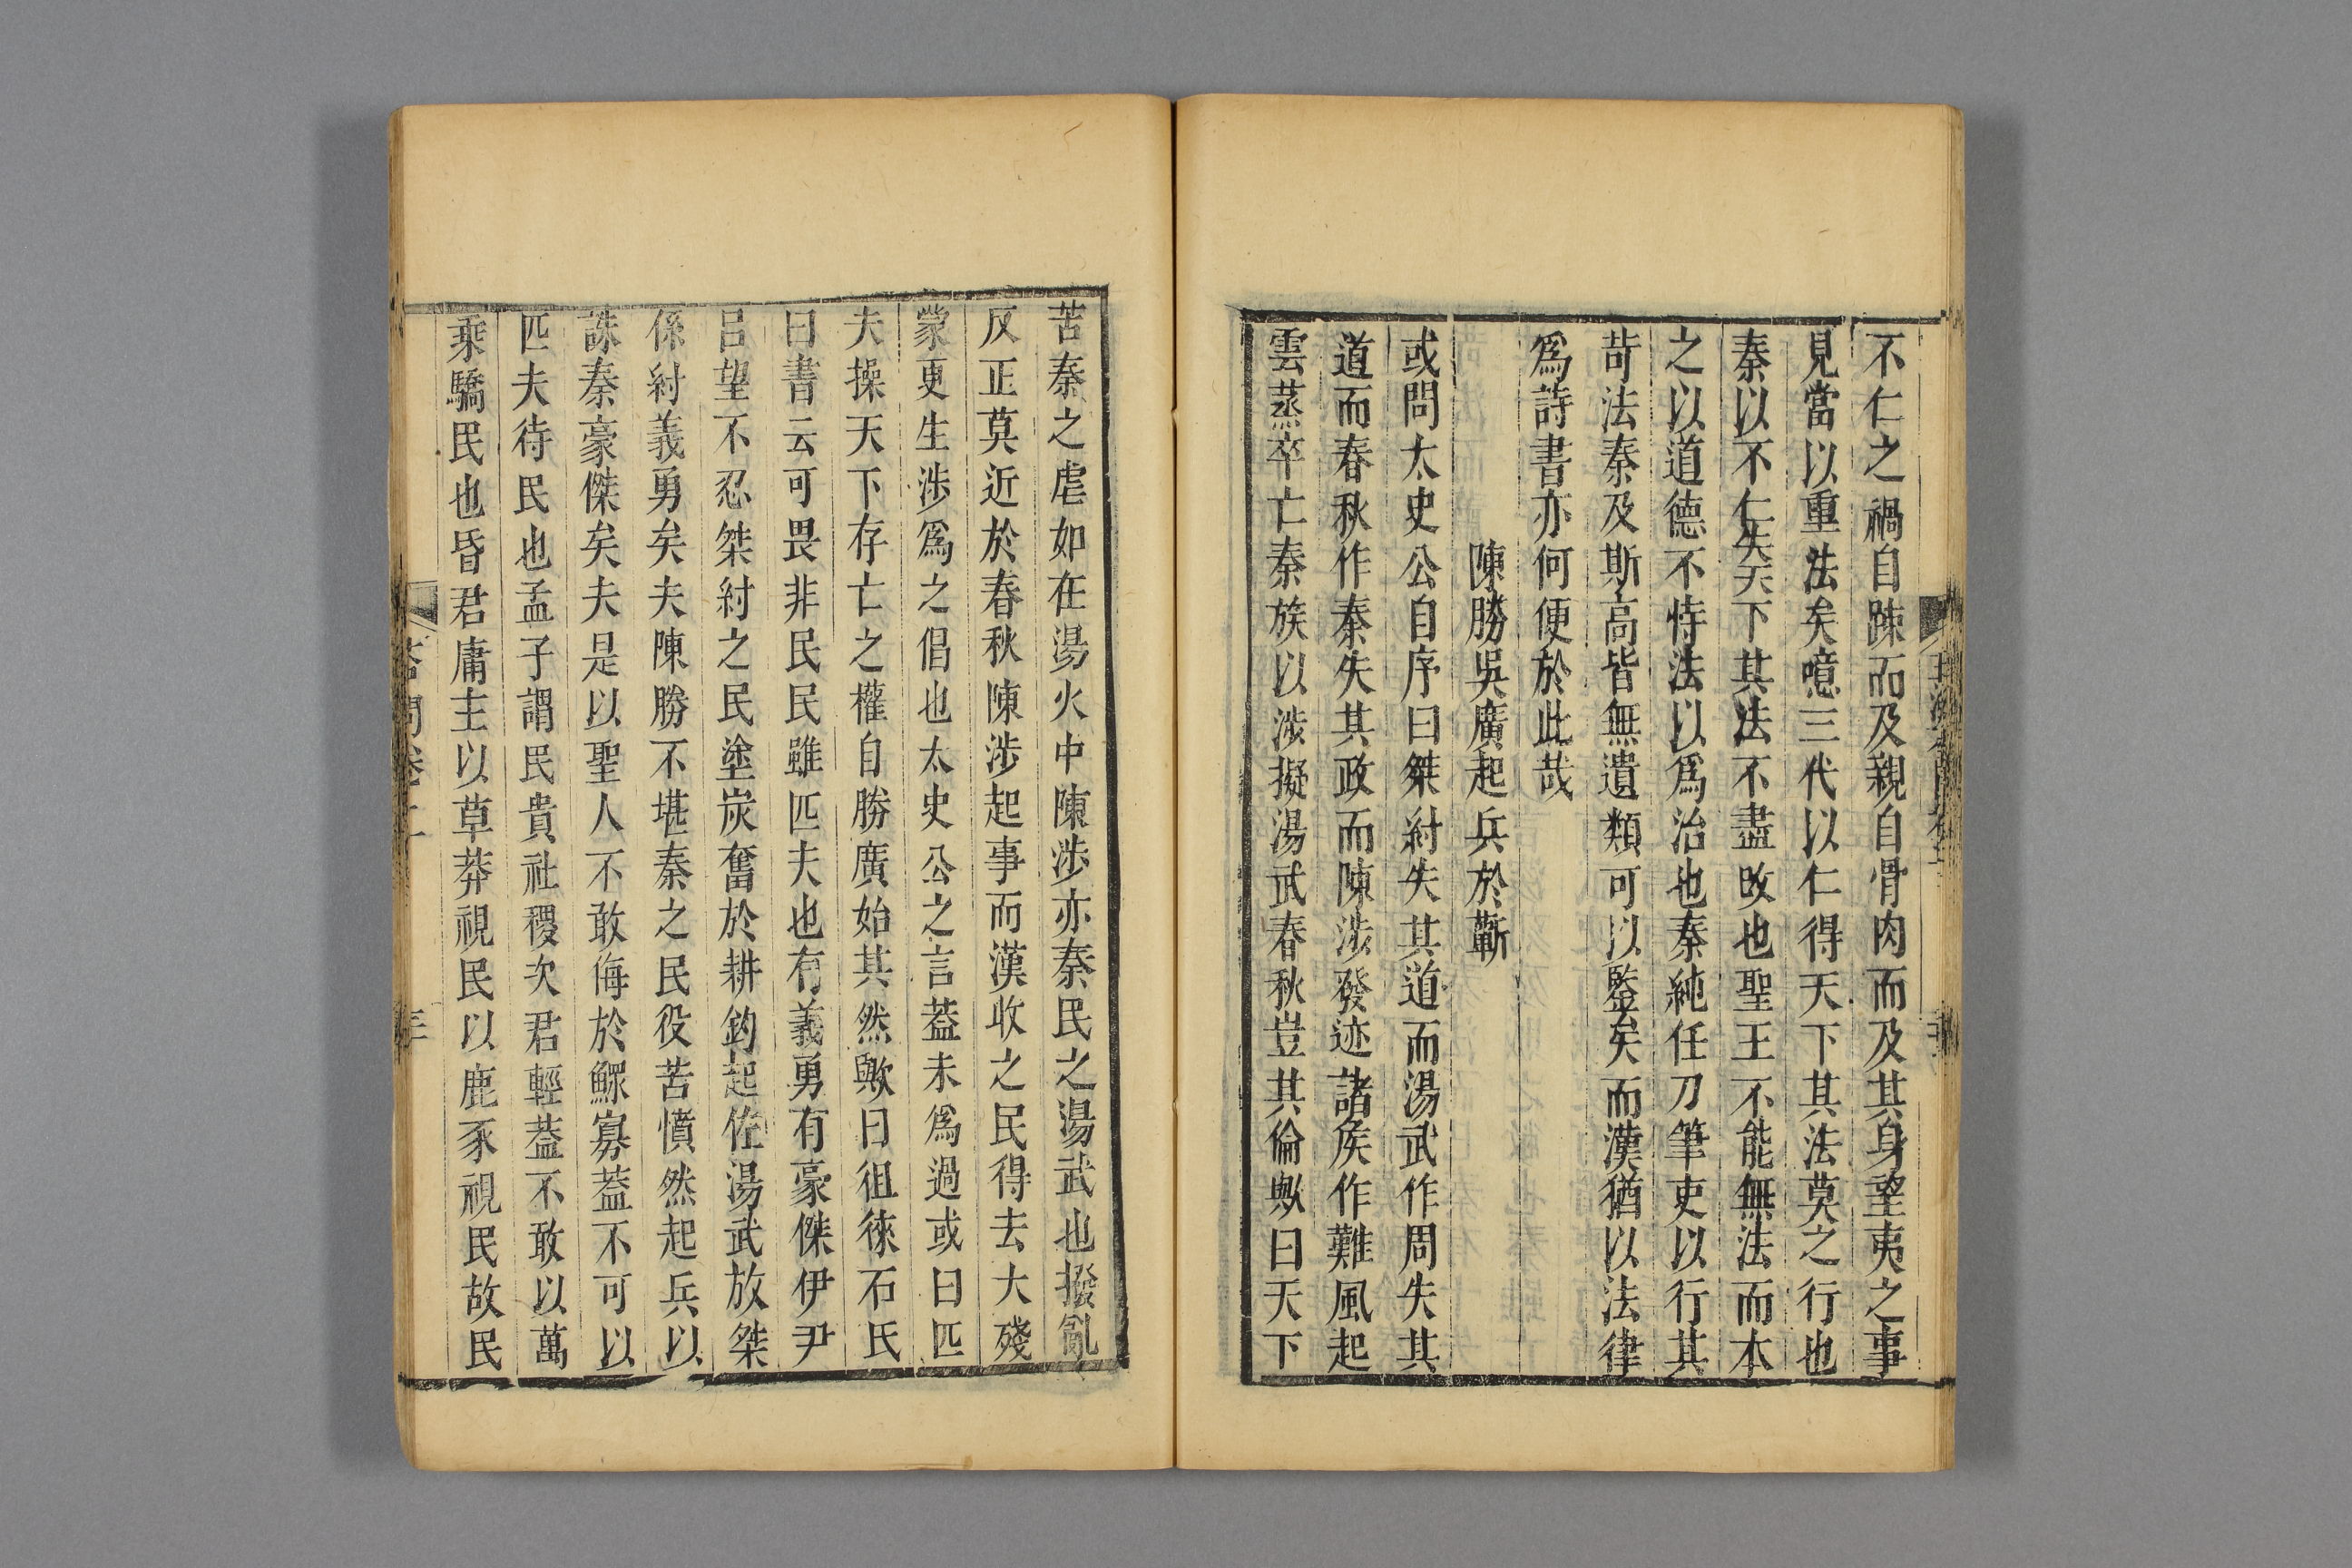 不仁之禍自踈而及親自骨肉而及其身望夷之事
見當以重法矣噫三代以仁得天下其法莫之行也
秦以不仁失天下其法不盡改也聖王不能無法而本
之以道德不恃法以爲治也秦純任刀筆吏以行其
苛法秦及斯高皆無遺類可以鑒矣而漢猶以法律
爲詩書亦何便於此哉
陳勝吳廣起兵於蘄
或問太史公自序曰桀紂失其道而湯武作周失其
道而春秋作秦失其政而陳涉發迹諸矦作難風起
雲蒸卒亡秦族以涉擬湯武春秋豈其倫歟曰天下
苦秦之虐如在湯火中陳涉亦秦民之湯武也撥亂
反正莫近於春秋陳涉起事而漢收之民得去大殘
蒙更生涉爲之倡也太史公之言葢未爲過或曰匹
夫操天下存亡之權自勝廣始其然歟曰徂徠石氏
曰書云可畏非民民雖匹夫也有義勇有豪傑伊尹
呂望不忍桀紂之民塗炭奮於耕釣起佐湯武放桀
係紂義勇矣夫陳勝不堪秦之民役苦憤然起兵以
誅秦豪傑矣夫是以聖人不敢侮於鰥寡葢不可以
匹夫待民也孟子謂民貴社稷次君輕葢不敢以萬
乘驕民也昏君庸主以草莽視民以鹿豕視民故民
答問卷二